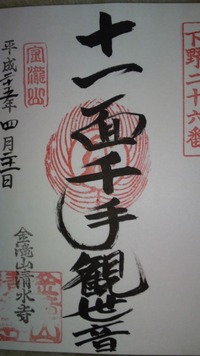 下野二十六番
十一面千手観世音
金瀧山
平成二十五年四月二十一日
金滝山清水寺